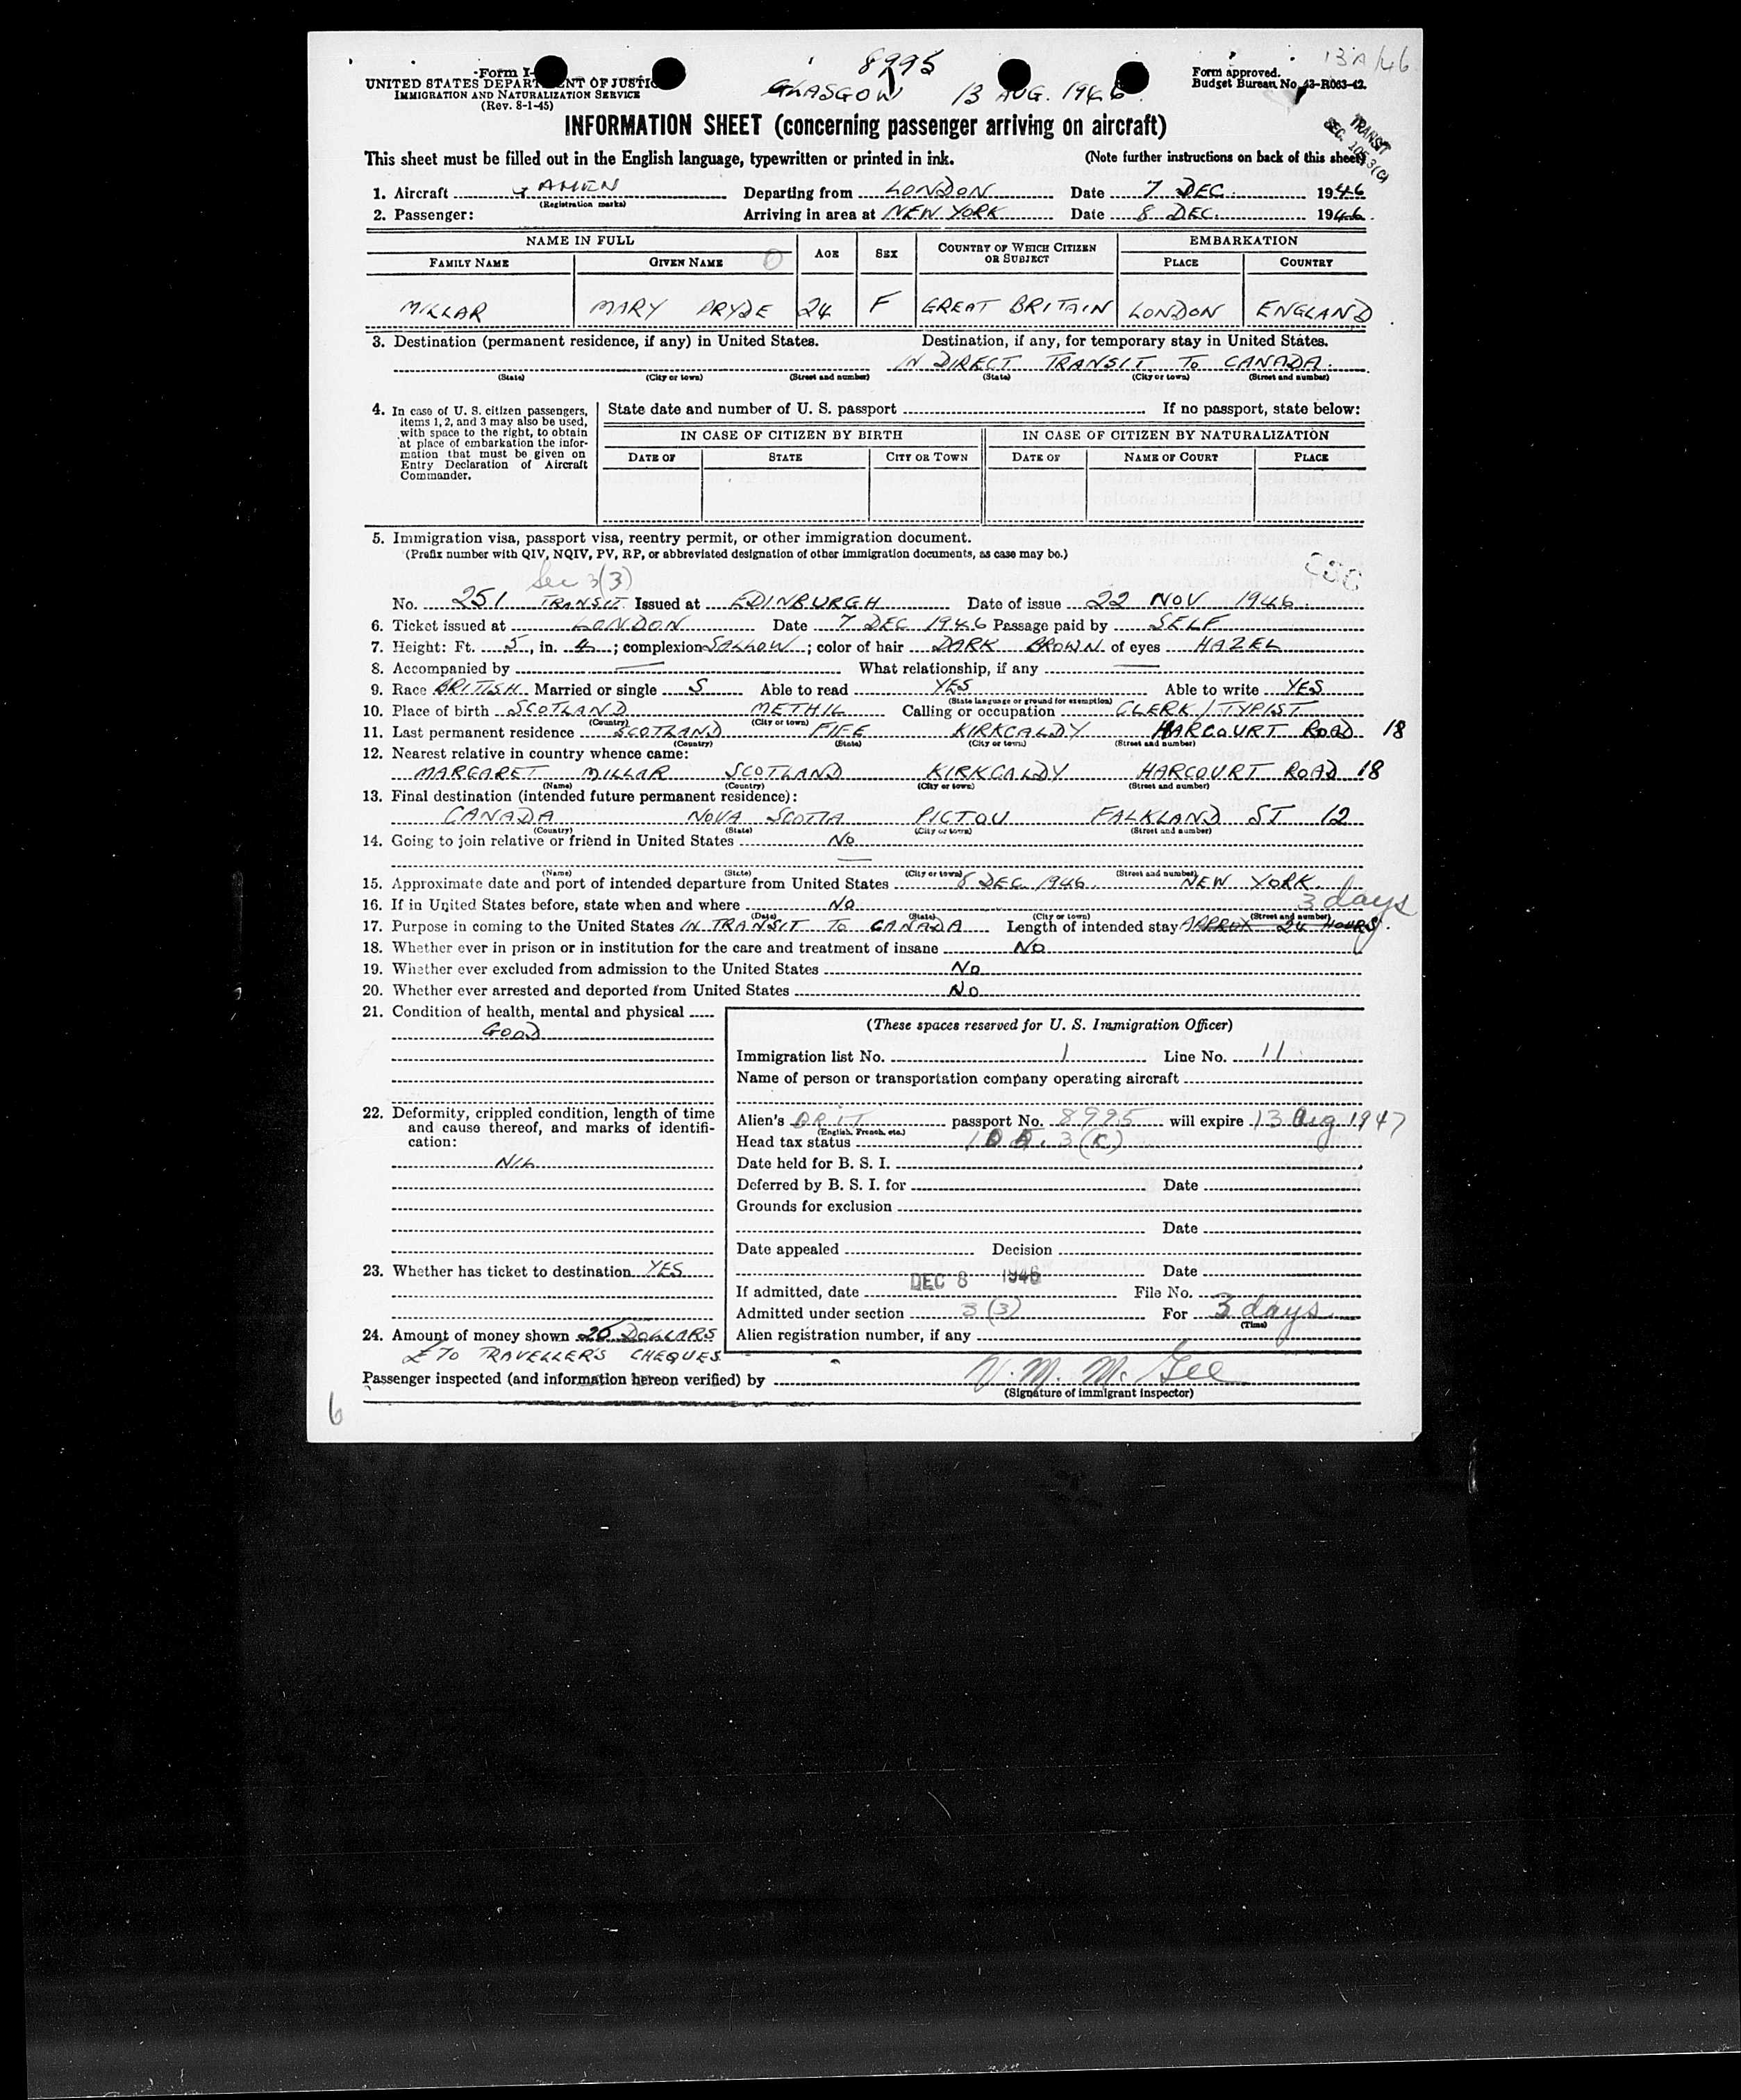 8995
13A/46
Form I-
UNITED STATES DEPARTMENT OF JUSTICE
IMMIGRATION AND NATURALIZATION SERVICE
(Rev. 8-1-45)
GLASGOW 13 AUG. 1946.
Form approved.
Budget Bureau No. 43-R063-42.
INFORMATION SHEET (concerning passenger arriving on aircraft)
TRANSIT
SEC. 105.3(C)
This sheet must be filled out in the English language, typewritten or printed in ink. (Note further instructions on back of this sheet)
1. Aircraft G AHEN Departing from LONDON Date 7 DEC. 1946
(Registration marks)
2. Passenger: Arriving in area at NEW YORK Date 8 DEC. 1946.
NAME IN FULL AGE SEX COUNTRY OF WHICH CITIZEN OR SUBJECT EMBARKATION
FAMILY NAME GIVEN NAME PLACE COUNTRY
MILLAR MARY PRYDE 24 F GREAT BRITAIN LONDON ENGLAND
3. Destination (permanent residence, if any) in United States. Destination, if any, for temporary stay in United States.
IN DIRECT TRANSIT TO CANADA.
(State) (City or town) (Street and number) (State) (City or town) (Street and number)
4. In case of U. S. citizen passengers, items 1, 2, and 3 may also be used, with space to the right, to obtain at place of embarkation the information that must be given on Entry Declaration of Aircraft Commander.
State date and number of U. S. passport If no passport, state below:
IN CASE OF CITIZEN BY BIRTH IN CASE OF CITIZEN BY NATURALIZATION
DATE OF STATE CITY OR TOWN DATE OF NAME OF COURT PLACE
5. Immigration visa, passport visa, reentry permit, or other immigration document.
(Prefix number with QIV, NQIV, PV, RP, or abbreviated designation of other immigration documents, as case may be.)
Sec 3(3)
No. 251 TRANSIT Issued at EDINBURGH Date of issue 22 NOV 1946.
6. Ticket issued at LONDON Date 7 DEC 1946 Passage paid by SELF
7. Height: Ft. 5, in. 4; complexion SALLOW; color of hair DARK BROWN of eyes HAZEL
8. Accompanied by — What relationship, if any —
9. Race BRITISH Married or single S Able to read YES Able to write YES
(State language or ground for exemption)
10. Place of birth SCOTLAND METHIL Calling or occupation CLERK / TYPIST
(Country) (City or town)
11. Last permanent residence SCOTLAND FIFE KIRKCALDY HARCOURT ROAD 18
(Country) (State) (City or town) (Street and number)
12. Nearest relative in country whence came:
MARGARET MILLAR SCOTLAND KIRKCALDY HARCOURT ROAD 18
(Name) (Country) (City or town) (Street and number)
13. Final destination (intended future permanent residence):
CANADA NOVA SCOTIA PICTOU FALKLAND ST 12
(Country) (State) (City or town) (Street and number)
14. Going to join relative or friend in United States NO
—
(Name) (State) (City or town) (Street and number)
15. Approximate date and port of intended departure from United States 8 DEC 1946. NEW YORK.
16. If in United States before, state when and where NO
3 days
(Date) (State) (City or town) (Street and number)
17. Purpose in coming to the United States IN TRANSIT TO CANADA Length of intended stay APPROX 24 HOURS.
18. Whether ever in prison or in institution for the care and treatment of insane NO
19. Whether ever excluded from admission to the United States NO
20. Whether ever arrested and deported from United States NO
21. Condition of health, mental and physical
GOOD
22. Deformity, crippled condition, length of time and cause thereof, and marks of identification:
NIL
23. Whether has ticket to destination YES
24. Amount of money shown 20 DOLLARS
£70 TRAVELLER'S CHEQUES
(These spaces reserved for U. S. Immigration Officer)
Immigration list No. 1 Line No. 11
Name of person or transportation company operating aircraft
Alien's BRIT passport No. 8995 will expire 13 Aug 1947
(English, French, etc.)
Head tax status 105.3(c)
Date held for B. S. I.
Deferred by B. S. I. for Date
Grounds for exclusion
Date
Date appealed Decision
Date
DEC 8 1946
If admitted, date File No.
Admitted under section 3(3) For 3 days
(Time)
Alien registration number, if any
Passenger inspected (and information hereon verified) by V. M. McGee
(Signature of immigrant inspector)
6